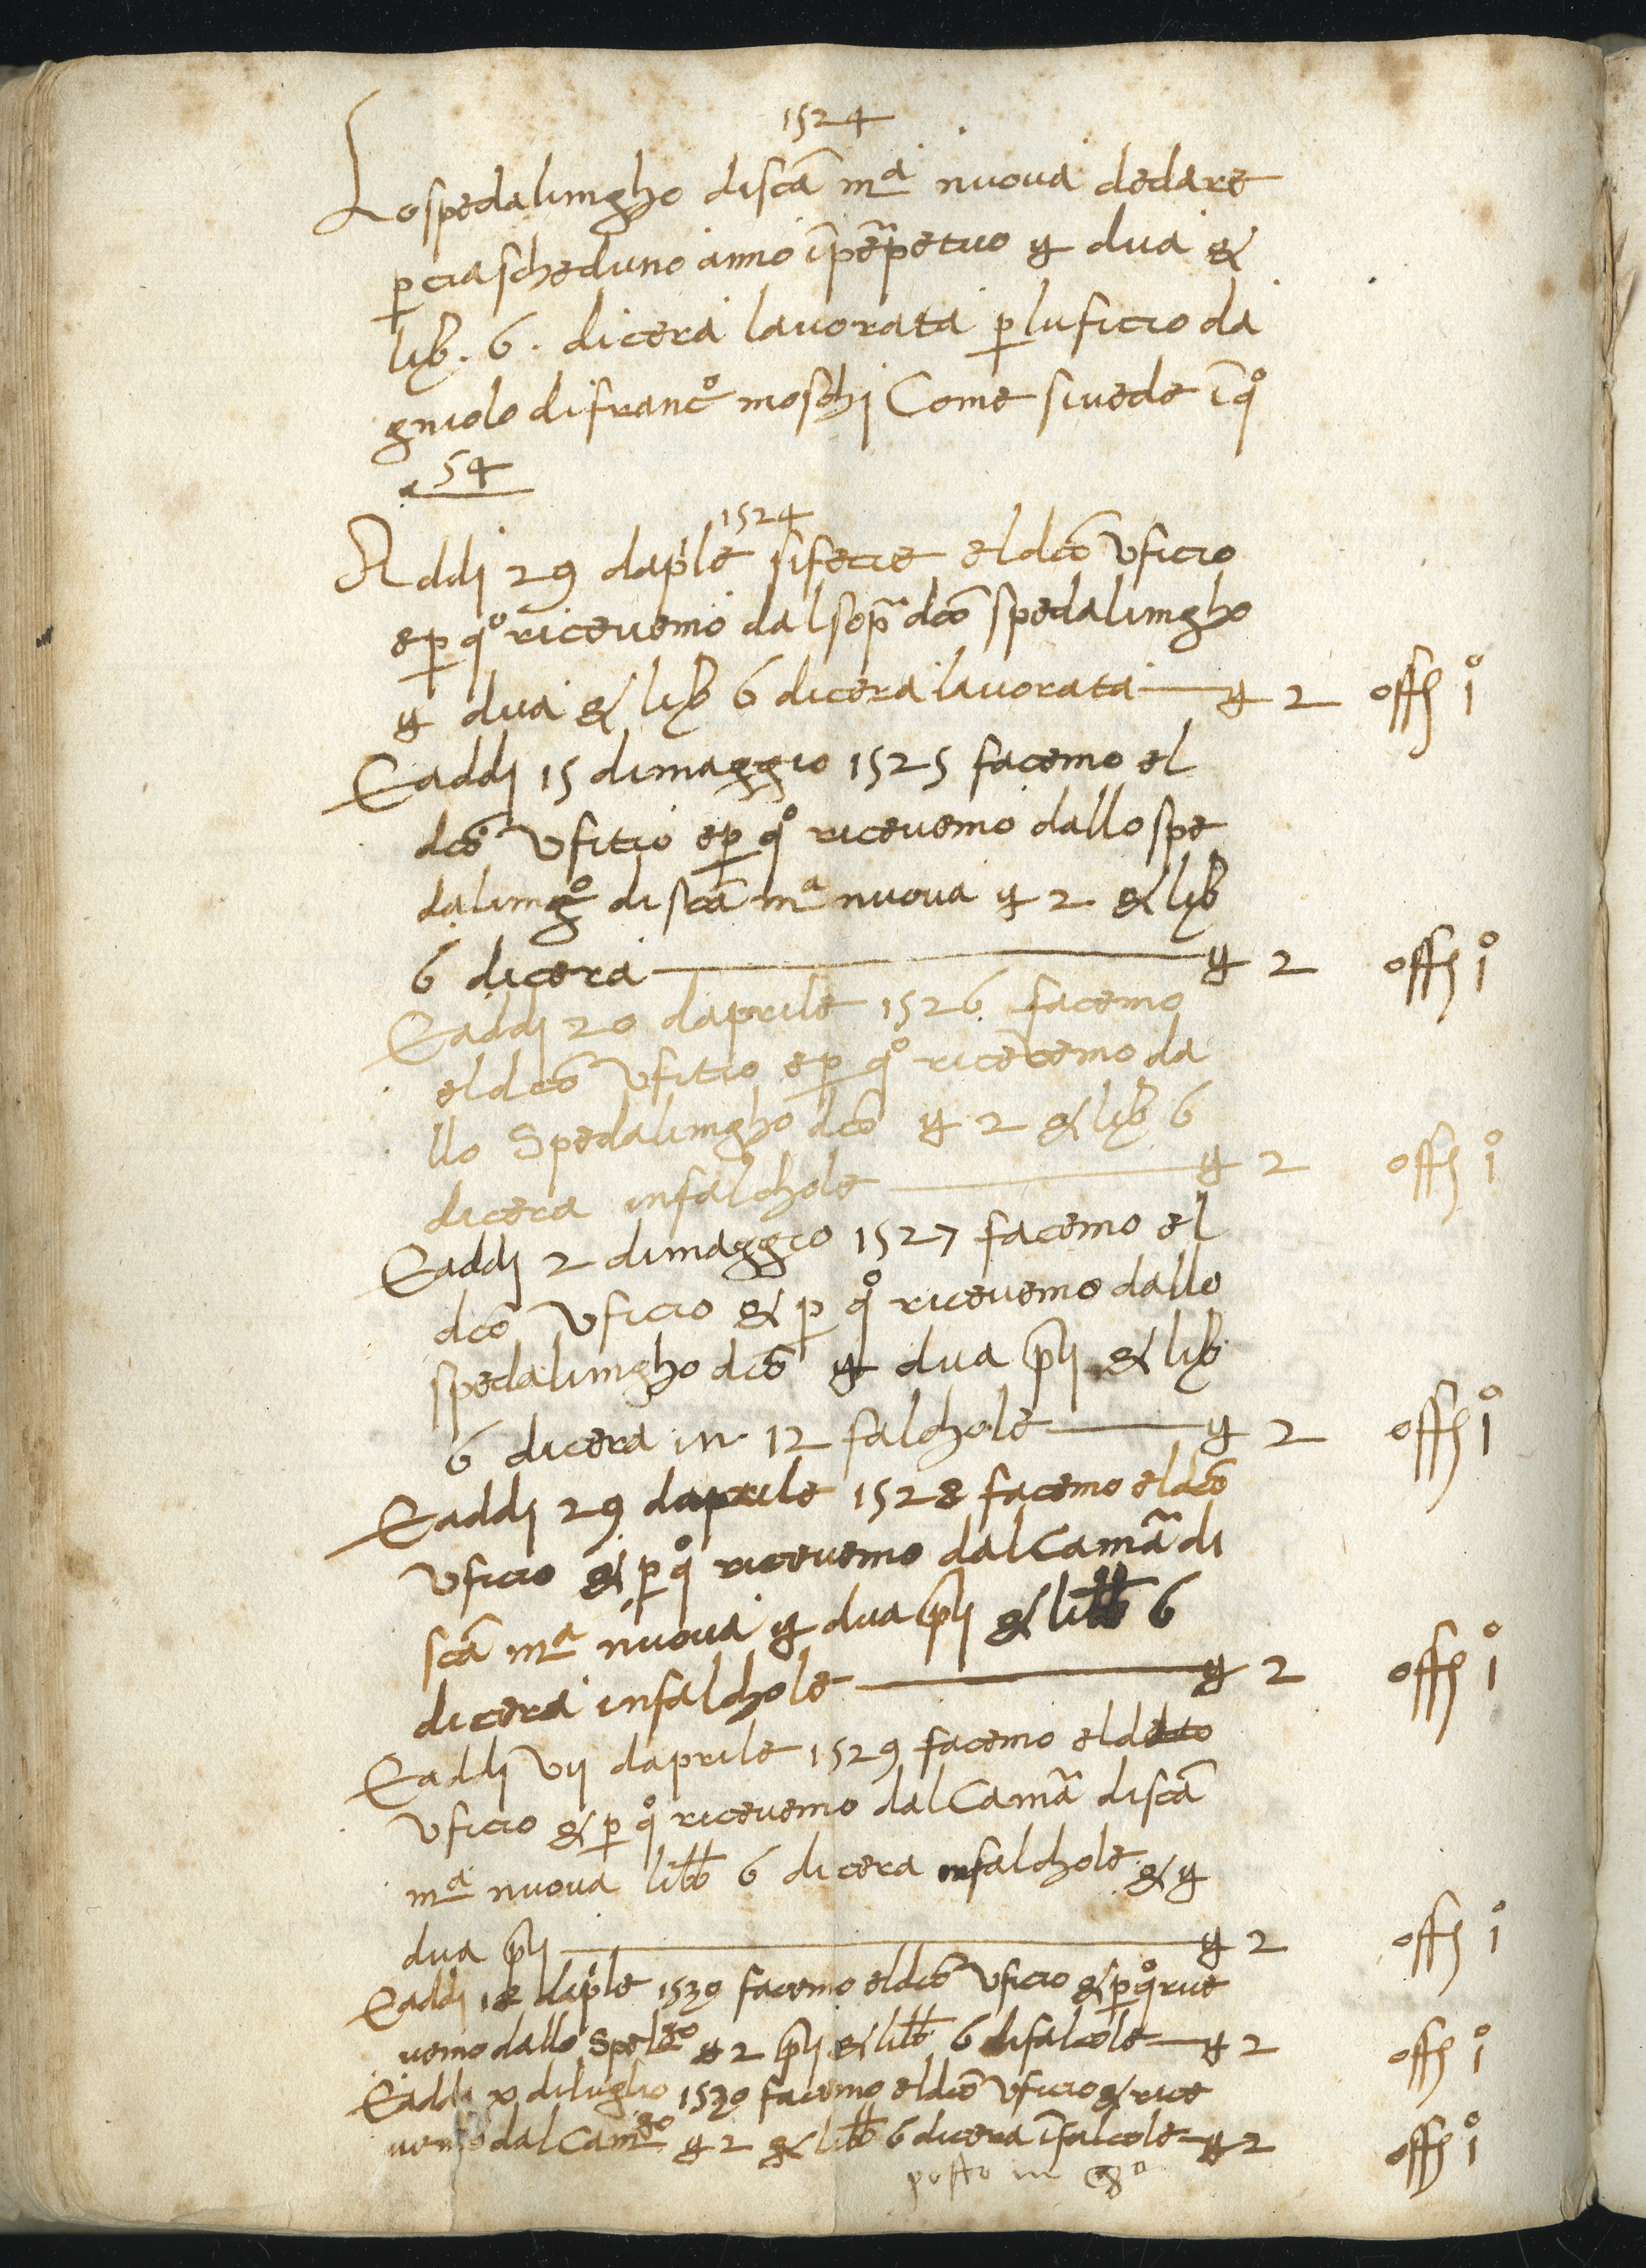 1524
Lospedalingho discā mª nuova dedare
p ciascheduno anno īpēpetuo ꝟ dua &
lib. 6. dicera lavorata pluficio da
gniolo difrancº moschi Come sivede ī qº
a 54
1524
Addi 29 dap'le sifecie eldcō Uficio
ep qº ricevemo dalsop̄ dcō spedalingho
ꝟ dua & lib 6 dicera lavorata — ꝟ 2 offj iº
Eaddi 15 dimaggio 1525 facemo el
dcō Ufitio ep qº ricevemo dallo spe
dalingº discā mª nuova ꝟ 2 & lib
6 dicera — ꝟ 2 offj iº
Eaddi 20 daprile 1526 facemo
eldcō Ufitio ep qº ricevemo da
llo Spedalingho dcō ꝟ 2 & lib 6
dicera infalchole — ꝟ 2 offj iº
Eaddi 2 dimaggio 1527 facemo el
dcō Uficio & p qº ricevemo dallo
spedalingho dcō ꝟ dua & lib
6 dicera in 12 falchole — ꝟ 2 offj iº
Eaddi 29 daprile 1528 facemo eldcō
Uficio & p qº ricevemo dalCamā di
scā mª nuova ꝟ dua & libb 6
dicera infalchole — ꝟ 2 offj iº
Eaddi vij daprile 1529 facemo eldetto
Uficio & p qº ricevemo dalCamā discā
mª nuova libb 6 dicera infalchole & ꝟ
dua — ꝟ 2 offj iº
Eaddi 18 facemo eldcō Uficio & p qº rice
vemo dallo ꝟ 2 & libb 6 difalcole — ꝟ 2 offj iº
Eaddi x diluglio facemo eldcō Uficio & rice
vemo dalCamgo ꝟ 2 & libb 6 dicera īfalcole — ꝟ 2 offj iº
posto in